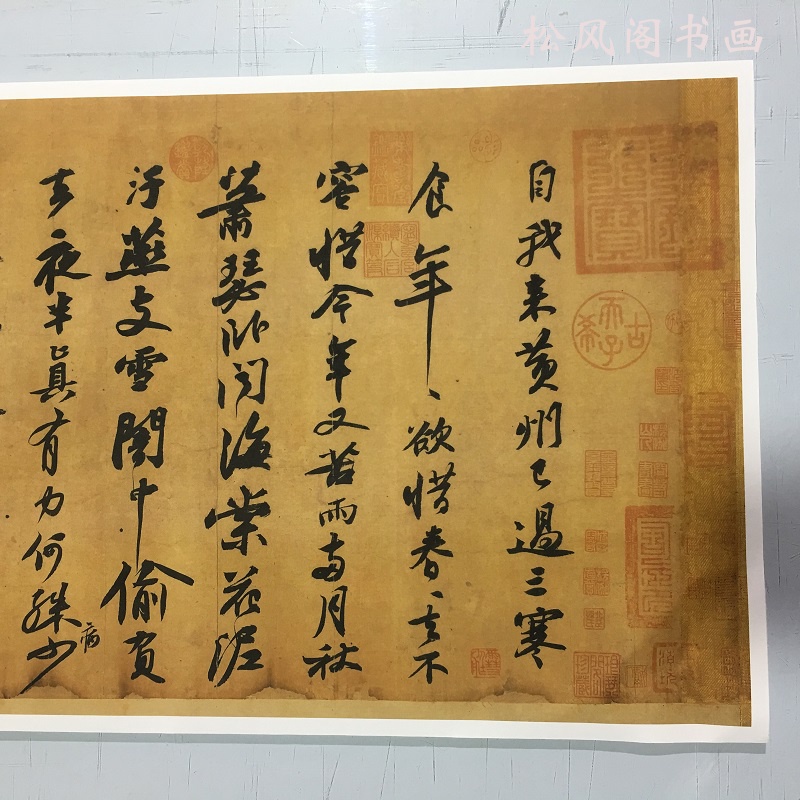 松风阁书画
自我来黄州已過三寒
食年〻欲惜春〻去不
容惜今年又苦雨兩月秋
蕭瑟卧聞海棠花泥
汙燕支雪闇中偷負
去夜半真有力何殊少
病
古希天子